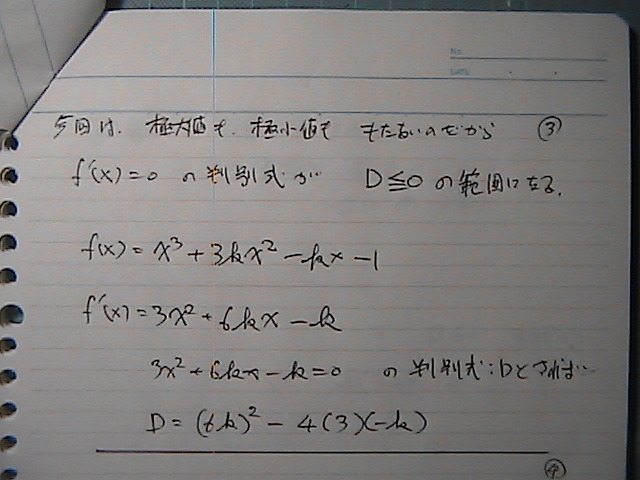 No.
DATE
今回は、極大値も、極小値も もたないのだから ③
f'(x)=0 の判別式が D≦0 の範囲になる。
f(x)=x³+3kx²-kx-1
f'(x)=3x²+6kx-k
3x²+6kx-k=0 の判別式:Dとすれば…
D=(6k)²-4(3)(-k)
④